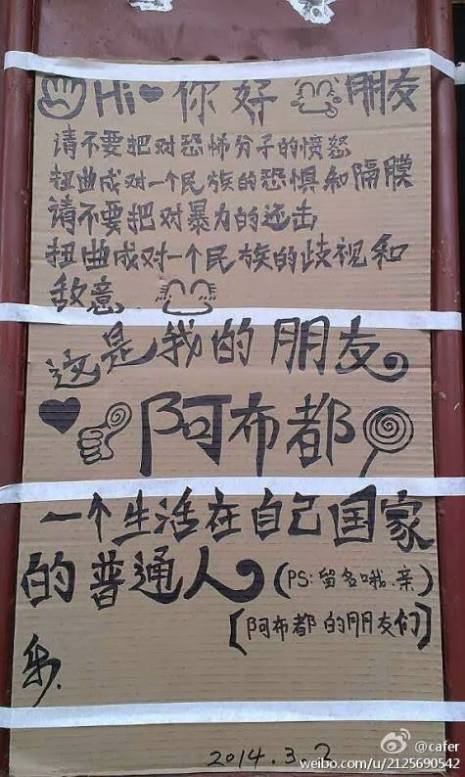 Hi 你好 朋友
请不要把对恐怖分子的愤怒
扭曲成对一个民族的恐惧和隔膜
请不要把对暴力的还击
扭曲成对一个民族的歧视和
敌意
这是我的朋友
阿布都
一个生活在自己国家
的普通人(PS:留名哦.亲)
[阿布都的朋友们]
2014.3.2
@cafer
weibo.com/u/2125690542